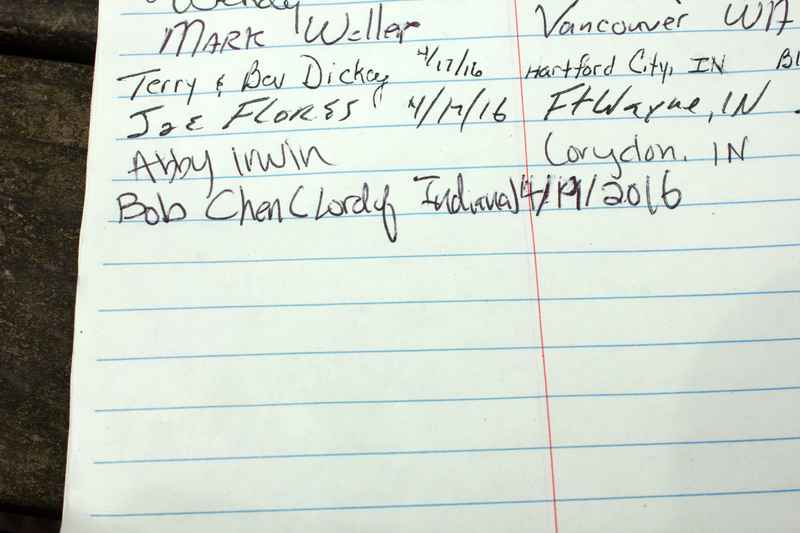 Wendy
MARK Weller Vancouver WA
Terry & Bev Dickey 4/17/16 Hartford City, IN Bl
JOE FLORES 4/17/16 Ft Wayne, IN
Abby Irwin Corydon, IN
Bob Chen (Lord of Indiana) 4/19/2016